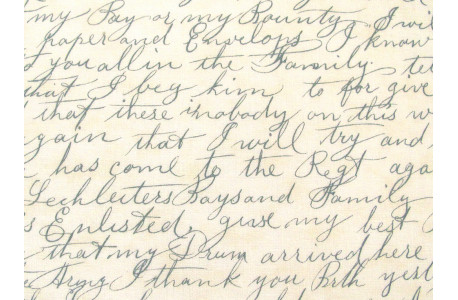 my Pay or my Bounty I wil
paper and Envelops I know
d you all in the Family. tel
that I beg him to for give
that these is nobody on this w
gain that I will try and
has come to the Regt aga
Lechleiters Boys and Family
s Enlisted, give my best
that my Drum arrived here
Army I thank you Both